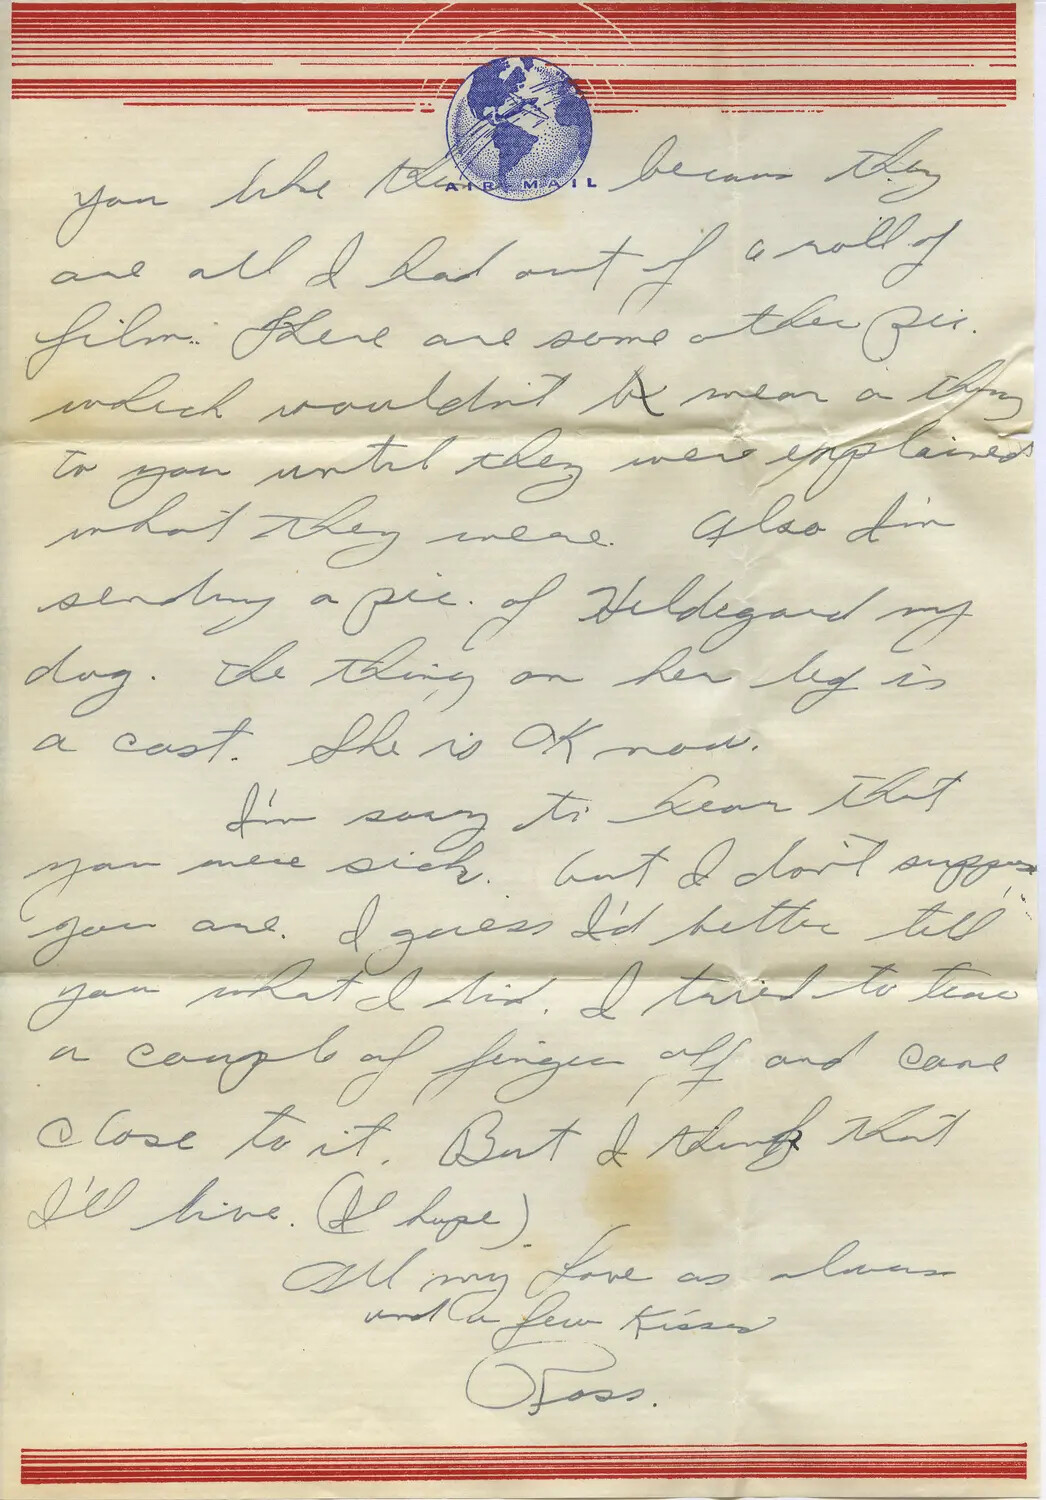 AIR MAIL
you like them becaus they
are all I had out of a roll of
film. There are some other pic.
which wouldn't mean a thing
to you until they were explained
what they were. Also I'm
sending a pic. of Hildegard my
dog. The thing on her leg is
a cast. She is OK now.
I'm sorry to hear that
you were sick. but I don't suppose
you are. I guess I'd better tell
you what I did. I tried to tear
a coupl of finger off and came
close to it. But I think that
I'll live. (I hope).
All my love as always
and a few Kisses
Ross.